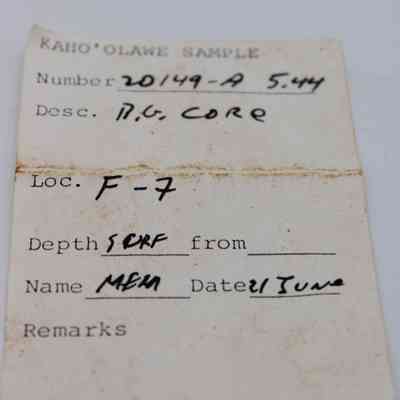 KAHO'OLAWE SAMPLE
Number 20149-A 5.44
Desc. B.G. CORE
Loc. F-7
Depth SURF from
Name MEM Date 21 June
Remarks